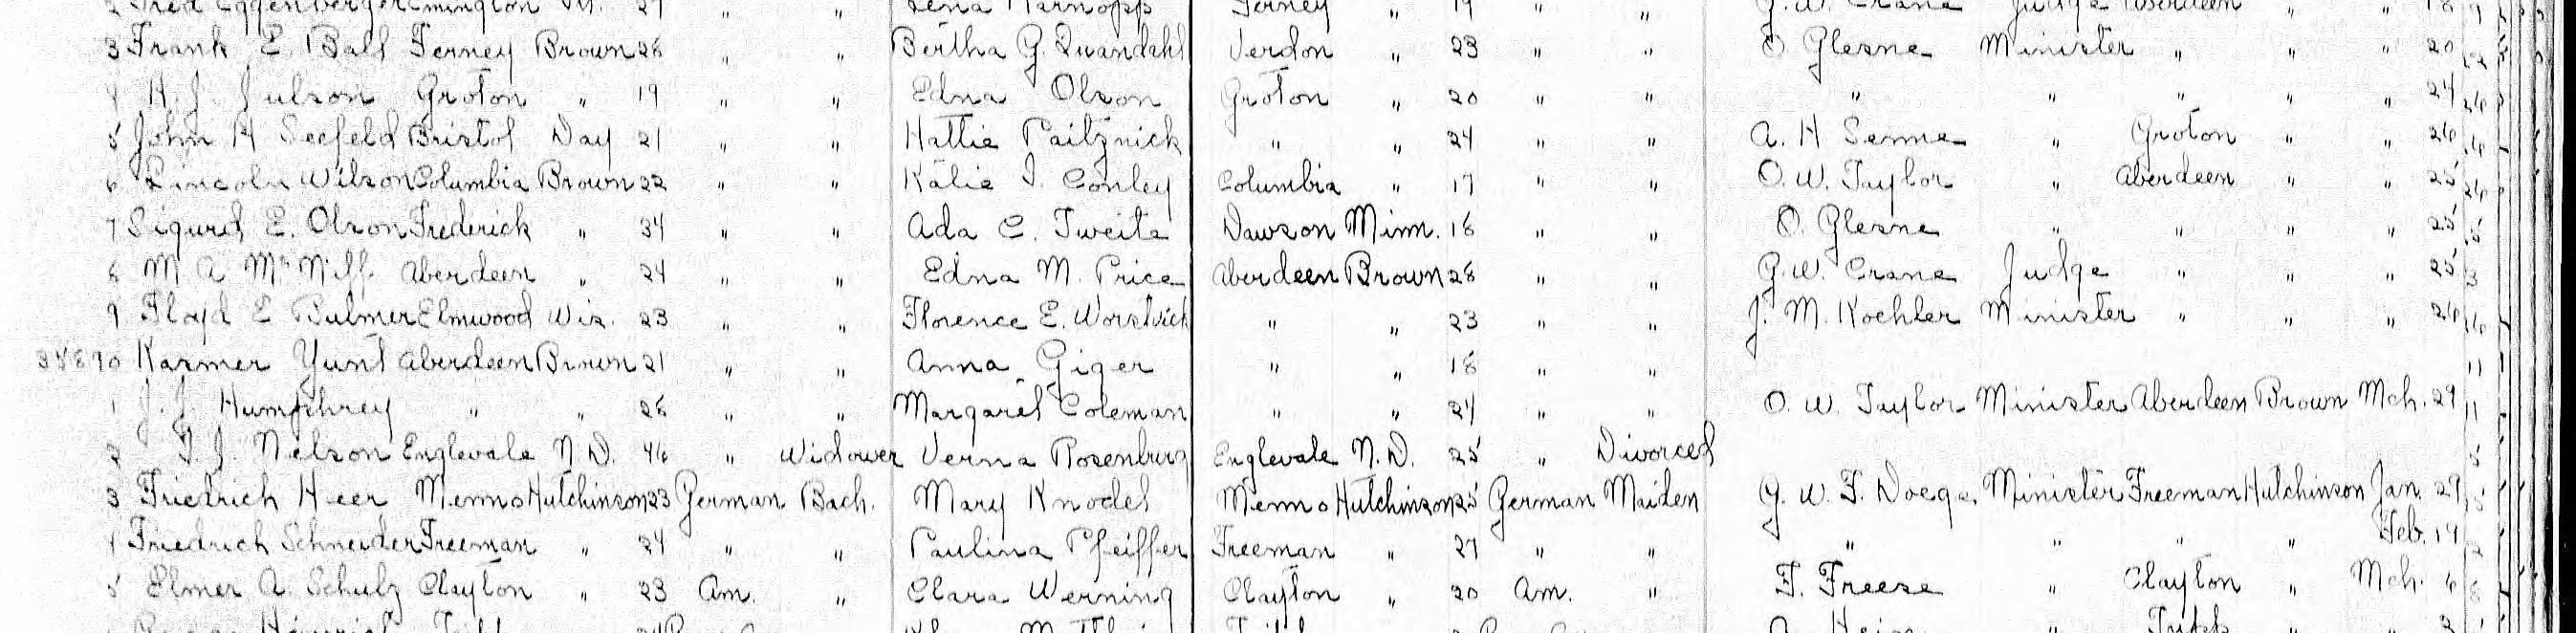 2 Fred Eggenberger Emington Ill. 27 " " Lena Karnopp Ferney " 19 " " G. W. Crane Judge Aberdeen " " 18
3 Frank E. Ball Ferney Brown 26 " " Bertha G. Quandahl Verdon " 23 " " O Glesne Minister " " " 20
4 H. J. Julson Groton " 19 " " Edna Olson Groton " 20 " " " " " " " 24
5 John H Seefeld Bristol Day 21 " " Hattie Paitznick " " 24 " " A. H Senne " Groton " " 26
6 Lincoln Wilson Columbia Brown 22 " " Katie I. Conley Columbia " 17 " " O. W. Taylor " Aberdeen " " 25
7 Sigurd E. Olson Frederick " 34 " " Ada C. Tweita Dawson Minn. 18 " " O. Glesne " " " " 25
8 M A " 24 " " Edna M. Price Aberdeen Brown 28 " " G. W. Crane Judge " " " 25
9 Floyd E Bulmer Elmwood Wis. 23 " " Florence E. Worswick " " 23 " " J. M. Koehler Minister " " " 26
0 Karmer Yunt Aberdeen Brown 21 " " Anna Giger " " 18 " "
1 J. J. Humphrey " " 26 " " Margaret Coleman " " 24 " " O. W. Taylor Minister Aberdeen Brown Mch. 29
2 T. J. Nelson Englevale N.D. 46 " Widower Verna Rosenburg Englevale N.D. 25 " Divorced
3 Friedrich Heer Menno Hutchinson 23 German Bach. Mary Knodel Menno Hutchinson 25 German Maiden G. W. F. Doege Minister Freeman Hutchinson Jan. 29
4 Friedrich Schneider Freeman " 24 " " Paulina Pfeiffer Freeman " 27 " " " " " " Feb. 19
5 Elmer A. Schulz Clayton " 23 Am. " Clara Werning Clayton " 20 Am. " F. Freese " Clayton " Mch. 6